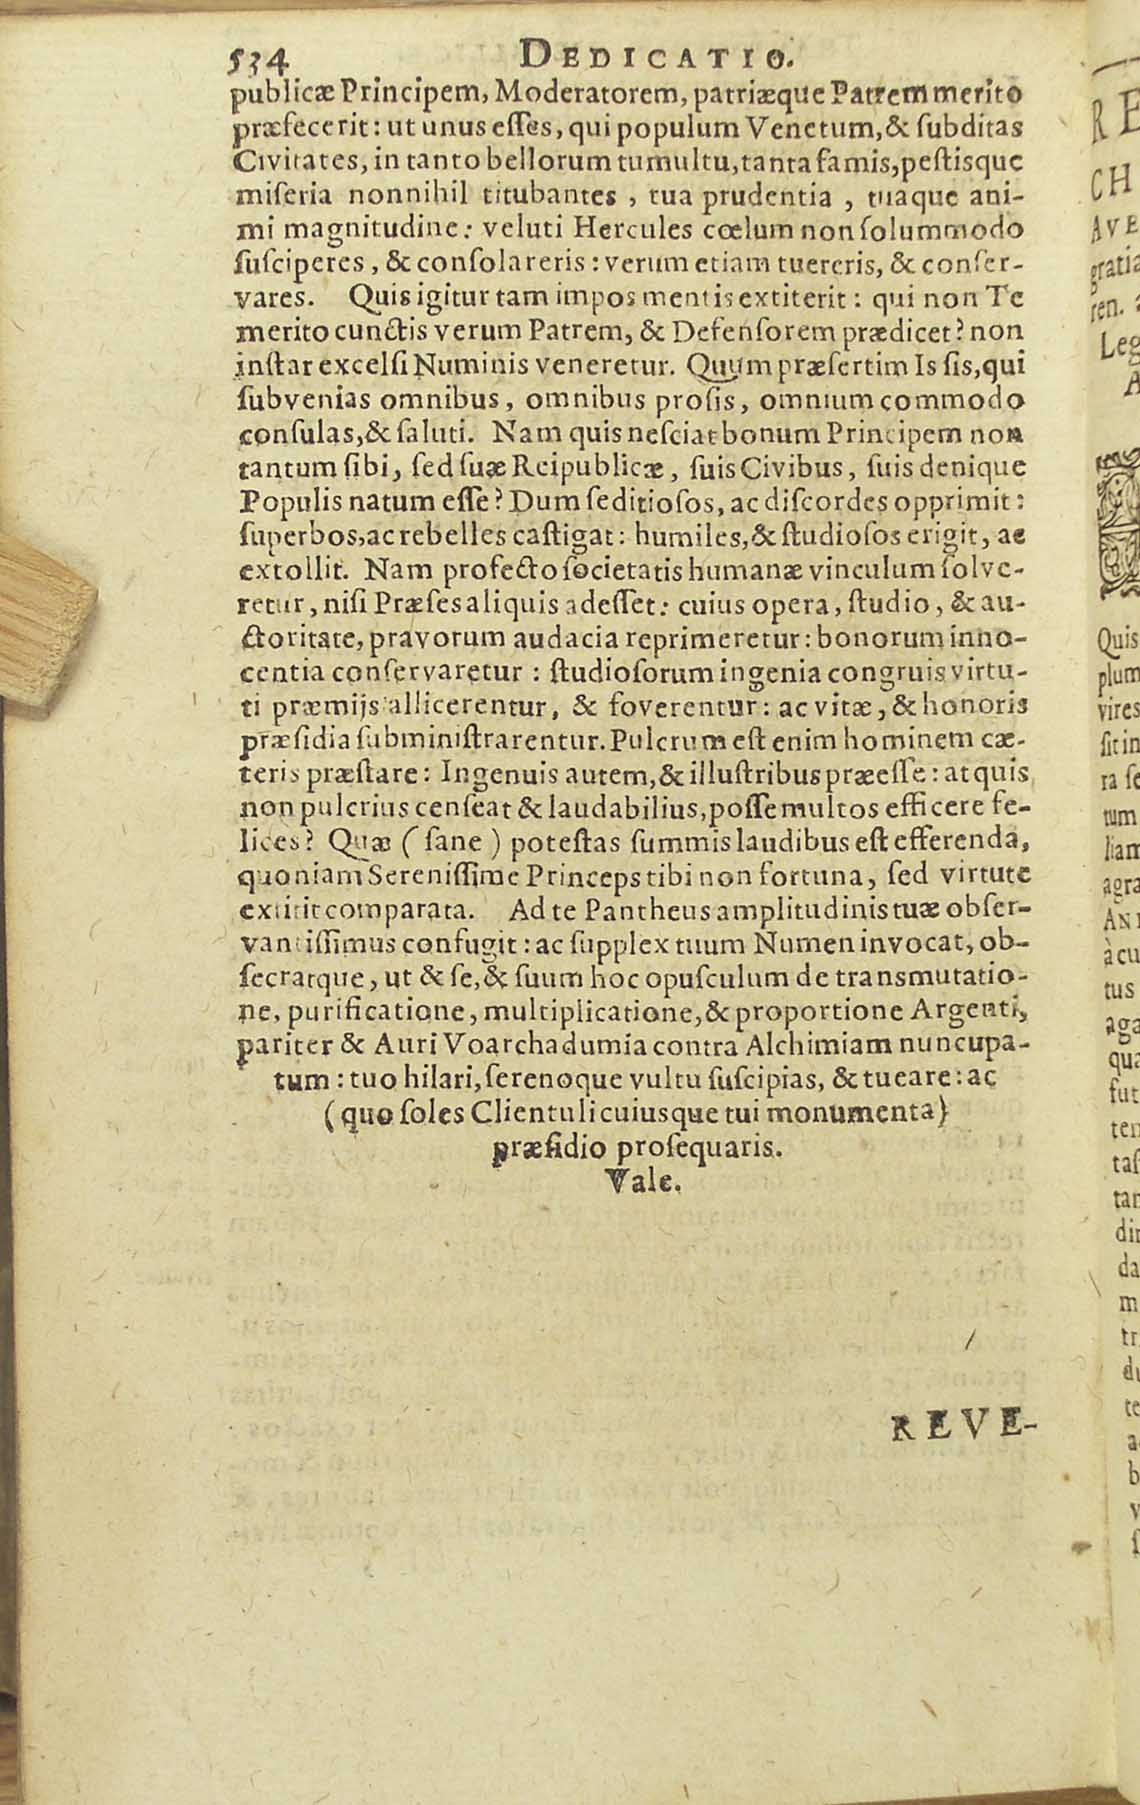 534 DEDICATIO.
publicæ Principem, Moderatorem, patriæque Patrem merito
præfecerit: ut unus eſſes, qui populum Venetum, & ſubditas
Civitates, in tanto bellorum tumultu, tanta famis, peſtisque
miſeria nonnihil titubantes, tua prudentia, tuaque ani-
mi magnitudine: veluti Hercules cœlum non ſolummodo
ſuſciperes, & conſolareris: verum etiam tuereris, & conſer-
vares. Quis igitur tam impos mentis extiterit: qui non Te
merito cunctis verum Patrem, & Defenſorem prædicet? non
inſtar excelſi Numinis veneretur. Quum præſertim Is ſis, qui
ſubvenias omnibus, omnibus proſis, omnium commodo
conſulas, & ſaluti. Nam quis neſciat bonum Principem non
tantum ſibi, ſed ſuæ Reipublicæ, ſuis Civibus, ſuis denique
Populis natum eſſe? Dum ſeditioſos, ac diſcordes opprimit:
ſuperbos, ac rebelles caſtigat: humiles, & ſtudioſos erigit, ac
extollit. Nam profecto ſocietatis humanæ vinculum ſolve-
retur, niſi Præſes aliquis adeſſet: cuius opera, ſtudio, & au-
ctoritate, pravorum audacia reprimeretur: bonorum inno-
centia conſervaretur: ſtudioſorum ingenia congruis virtu-
ti præmijs allicerentur, & foverentur: ac vitæ, & honoris
præſidia ſubminiſtrarentur. Pulcrum eſt enim hominem cæ-
teris præſtare: Ingenuis autem, & illuſtribus præeſſe: at quis
non pulcrius cenſeat & laudabilius, poſſe multos efficere fe-
lices? Quæ (ſane) poteſtas ſummis laudibus eſt efferenda,
quoniam Sereniſſime Princeps tibi non fortuna, ſed virtute
extitit comparata. Ad te Pantheus amplitudinis tuæ obſer-
vantiſſimus confugit: ac ſupplex tuum Numen invocat, ob-
ſecratque, ut & ſe, & ſuum hoc opuſculum de transmutatio-
ne, purificatione, multiplicatione, & proportione Argenti,
pariter & Auri Voarchadumia contra Alchimiam nuncupa-
tum: tuo hilari, ſerenoque vultu ſuſcipias, & tueare: ac
(quo ſoles Clientuli cuiusque tui monumenta)
præſidio proſequaris.
Vale.
REVE-
RE
CH
AVE
gratia
ren.
Leg
A
Quis
plum
vires
ſit in
ra ſe
tum
liam
agra
AN
à cu
tus
aga
qua
fut
ter
taſ
tar
dir
da
m
tr
du
te
a
b
v